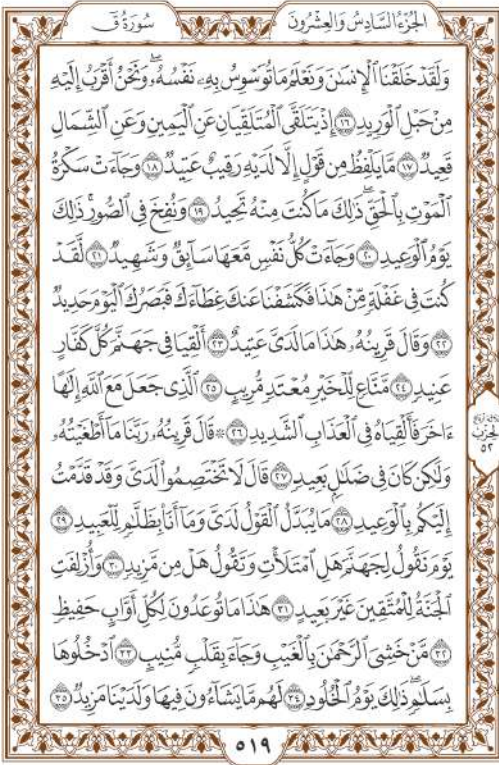 الجُزْءُ السَّادِسُ وَالعِشْرُونَ سُورَةُ قٓ
وَلَقَدۡ خَلَقۡنَا ٱلۡإِنسَٰنَ وَنَعۡلَمُ مَا تُوَسۡوِسُ بِهِۦ نَفۡسُهُۥۖ وَنَحۡنُ أَقۡرَبُ إِلَيۡهِ
مِنۡ حَبۡلِ ٱلۡوَرِيدِ ١٦ إِذۡ يَتَلَقَّى ٱلۡمُتَلَقِّيَانِ عَنِ ٱلۡيَمِينِ وَعَنِ ٱلشِّمَالِ
قَعِيدٞ ١٧ مَّا يَلۡفِظُ مِن قَوۡلٍ إِلَّا لَدَيۡهِ رَقِيبٌ عَتِيدٞ ١٨ وَجَآءَتۡ سَكۡرَةُ
ٱلۡمَوۡتِ بِٱلۡحَقِّۖ ذَٰلِكَ مَا كُنتَ مِنۡهُ تَحِيدُ ١٩ وَنُفِخَ فِي ٱلصُّورِۚ ذَٰلِكَ
يَوۡمُ ٱلۡوَعِيدِ ٢٠ وَجَآءَتۡ كُلُّ نَفۡسٖ مَّعَهَا سَآئِقٞ وَشَهِيدٞ ٢١ لَّقَدۡ
كُنتَ فِي غَفۡلَةٖ مِّنۡ هَٰذَا فَكَشَفۡنَا عَنكَ غِطَآءَكَ فَبَصَرُكَ ٱلۡيَوۡمَ حَدِيدٞ
٢٢ وَقَالَ قَرِينُهُۥ هَٰذَا مَا لَدَيَّ عَتِيدٌ ٢٣ أَلۡقِيَا فِي جَهَنَّمَ كُلَّ كَفَّارٍ
عَنِيدٖ ٢٤ مَّنَّاعٖ لِّلۡخَيۡرِ مُعۡتَدٖ مُّرِيبٍ ٢٥ ٱلَّذِي جَعَلَ مَعَ ٱللَّهِ إِلَٰهًا
ءَاخَرَ فَأَلۡقِيَاهُ فِي ٱلۡعَذَابِ ٱلشَّدِيدِ ٢٦ ۞ قَالَ قَرِينُهُۥ رَبَّنَا مَآ أَطۡغَيۡتُهُۥ
وَلَٰكِن كَانَ فِي ضَلَٰلِۭ بَعِيدٖ ٢٧ قَالَ لَا تَخۡتَصِمُواْ لَدَيَّ وَقَدۡ قَدَّمۡتُ
إِلَيۡكُم بِٱلۡوَعِيدِ ٢٨ مَا يُبَدَّلُ ٱلۡقَوۡلُ لَدَيَّ وَمَآ أَنَا۠ بِظَلَّٰمٖ لِّلۡعَبِيدِ ٢٩
يَوۡمَ نَقُولُ لِجَهَنَّمَ هَلِ ٱمۡتَلَأۡتِ وَتَقُولُ هَلۡ مِن مَّزِيدٖ ٣٠ وَأُزۡلِفَتِ
ٱلۡجَنَّةُ لِلۡمُتَّقِينَ غَيۡرَ بَعِيدٍ ٣١ هَٰذَا مَا تُوعَدُونَ لِكُلِّ أَوَّابٍ حَفِيظٖ
٣٢ مَّنۡ خَشِيَ ٱلرَّحۡمَٰنَ بِٱلۡغَيۡبِ وَجَآءَ بِقَلۡبٖ مُّنِيبٍ ٣٣ ٱدۡخُلُوهَا
بِسَلَٰمٖۖ ذَٰلِكَ يَوۡمُ ٱلۡخُلُودِ ٣٤ لَهُم مَّا يَشَآءُونَ فِيهَا وَلَدَيۡنَا مَزِيدٞ ٣٥
الحِزْب
٥٢
٥١٩